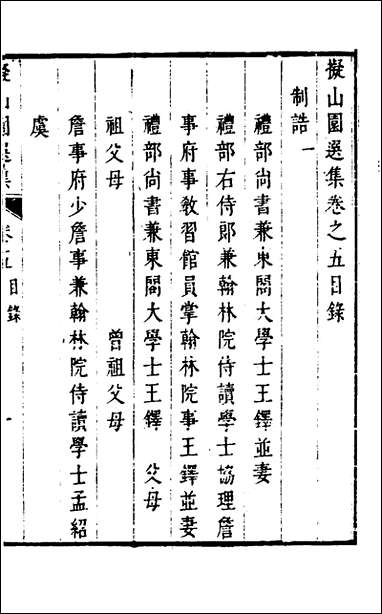 擬山園選集卷之五目錄
制誥一
禮部尚書兼東閣大學士王鐸並妻
禮部右侍郎兼翰林院侍讀學士協理詹
事府事教習館員掌翰林院事王鐸並妻
禮部尚書兼東閣大學士王鐸 父母
祖父母 曾祖父母
詹事府少詹事兼翰林院侍讀學士孟紹
虞
擬山園選集 卷五目錄 一